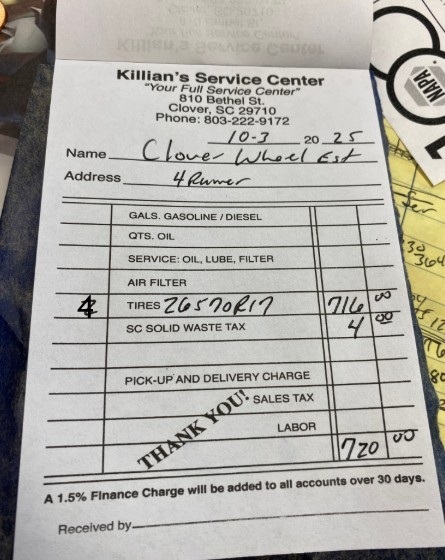 Killian's Service Center
Killian's Service Center
"Your Full Service Center"
810 Bethel St.
Clover, SC 29710
Phone: 803-222-9172
10-3 20 25
Name Clover Wheel Est
Address 4Runner
GALS. GASOLINE / DIESEL
QTS. OIL
SERVICE: OIL, LUBE, FILTER
AIR FILTER
4 TIRES 26570R17 716 00
SC SOLID WASTE TAX 4 00
PICK-UP AND DELIVERY CHARGE
SALES TAX
THANK YOU!
LABOR
720 00
A 1.5% Finance Charge will be added to all accounts over 30 days.
Received by
NAPA